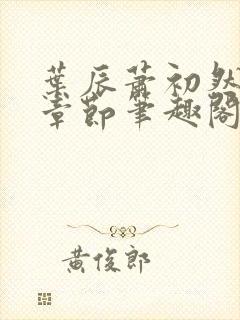 葉辰蕭初然
章節筆趣閣
黃俊郎